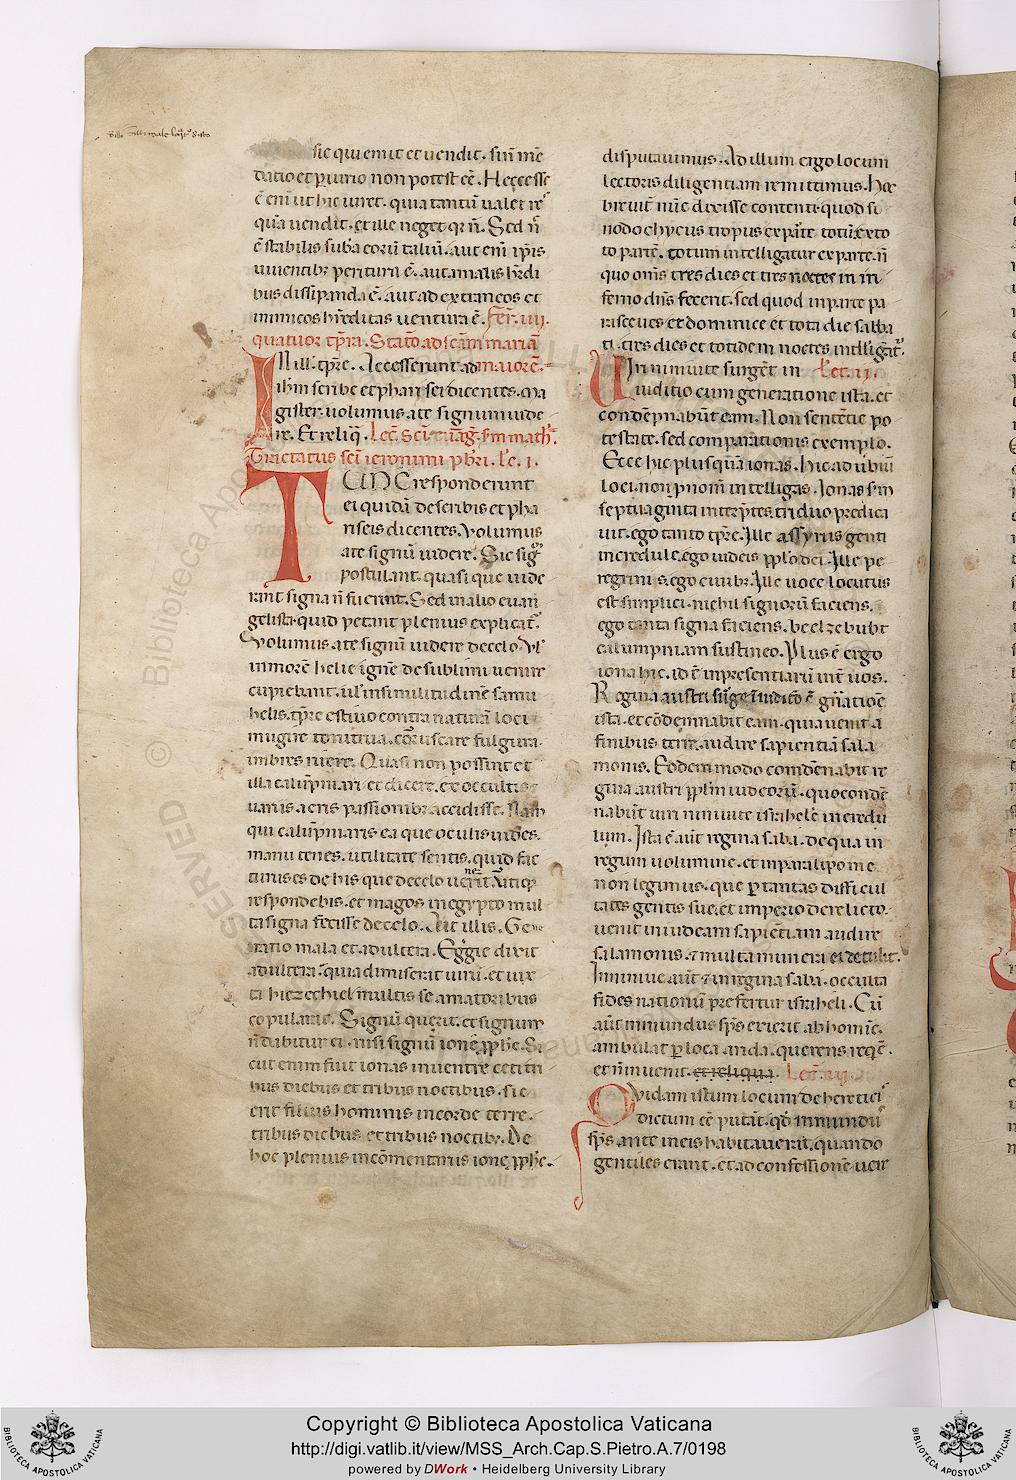 sic qui emit et uendit. sin̄ mē
datio et ꝑiurio non potest eē. Hecesse
ē eni ut hic iuret. quia tantū ualet res
quā uendit. et ille neget qr n̄. Sed n̄
ē stabilis suba eorū taliū. aut eni ipis
uiuentibꝫ peritura ē. aut malis hr̄di
bus dissipanda ē. aut ad extraneos et
inimicos hr̄editas uentura ē. Fer̄. iiij.
quatuor tp̄ra. Statō ad scām mariā
IN ill. tp̄re. Accesserunt ad maiorē.
ihm scribe et pharisei dicentes. ma
gister. uolumus a te signum uide
re. Et reliq̄. Lec̄. sci euāg. sm math.
Tractatus sci ieronimi pbri. Le. i.
TUNC responderunt
ei quidā de scribis et pha
riseis dicentes. Volumus
a te signū uidere. Sic sig
postulant. quasi que uide
rant signa n̄ fuerint. Sed in alio euan
gelista. quid petant plenius explicat̄.
Volumus a te signū uidere de celo. Vl
in morē helie ignē de sublimi uenire
cupiebant. ul in similitudinē samu
helis. tp̄re estiuo contra naturā loci
mugire tonitrua. coruscare fulgura.
imbres ruere. Quasi non possint et
illa calūpniari et dicere. ex occultis
uariis aeris passionibꝫ accidisse. Nam
qui calūpniaris ea que oculis uides.
manu tenes. utilitate sentis. quid fac
turus es de his que de celo uenerint. Vtiqꝫ
respondebis. et magos in egypto mul
ta signa fecisse de celo. Ait illis. Ge
ratio mala et adultera. Egregie dixit
adultera. quia dimiserat uirū. et iux
ta hiezechiel multis se amatoribus
copularit. Signū querit. et signum
n̄ dabitur ei. nisi signū ione pphe. Si
cut enim fuit ionas in uentre ceti tri
bus diebus et tribus noctibus. sic
erit filius hominis in corde terre.
tribus diebus et tribus noctibꝫ. De
hoc plenius in cōmentariis ione pphe.
disputauimus. Ad illum ergo locum
lectoris diligentiam remittimus. hoc
breuit̄ nūc dixisse contenti. quod si
nodochycus tropus ex parte totū. et ex to
to partē. totum intelligatur ex parte. n̄
quo om̄s tres dies et tres noctes in in
ferno dn̄s fecerit. sed quod in parte pa
rasceues et dominice et tota die sabba
ti. tres dies et totidem noctes intelligat̄.
Viri niniuite surget in Lec. ii.
iuditio cum generatione ista. et
condēpnabūt eam. Non sententie po
testate. sed comparationis exemplo.
Ecce hic plus quā ionas. hic ad ubiū
loci. non ꝓnom̄ intelligas. Ionas sm
septuaginta interp̄tes. triduo predica
uit. ego tanto tp̄re. Ille assyriis genti
incredule. ego iudeis pplo dei. Ille pe
regrinis. ego ciuibꝫ. Ille uoce locutus
est simplici. nichil signorū faciens.
ego tanta signa faciens. beelzebubt
calumpniam sustineo. Plus ē ergo
iona hic. id ē in presentiarū int̄ uos.
Regina austri surget in iudicio ē gn̄atiōe
ista. et cōdempnabit eam. quia uenit a
finibus terre. audire sapientiā sala
monis. Eodem modo comdēnabit re
gina austri pplm iudeorū. quo conde
nabūt uiri niniuite israhelē incredu
lum. Ista ē aut regina saba. de qua in
regum uolumine. et in paralipome
non legimus. que ꝑ tantas difficul
tates gentis sue. et imperio derelicto.
uenit in iudeam sapiētiam audire
salamonis. ⁊ multa munera ei detulit.
In niniue aut̄ ⁊ in regina saba. occulta
fides nationū prefertur israheli. Cū
aūt inmundus sp̄s exierit ab homīe.
ambulat ꝑ loca arida. querens reqē.
et n̄ inuenit. et reliqua. Lec̄. iij.
Quidam istum locum de hereticis
dictum eē putāt. qd inmundus
sp̄s. ante in eis habitauerit. quando
gentiles erant. et ad confessionē uere
Copyright © Biblioteca Apostolica Vaticana
http://digi.vatlib.it/view/MSS_Arch.Cap.S.Pietro.A.7/0198
powered by DWork • Heidelberg University Library